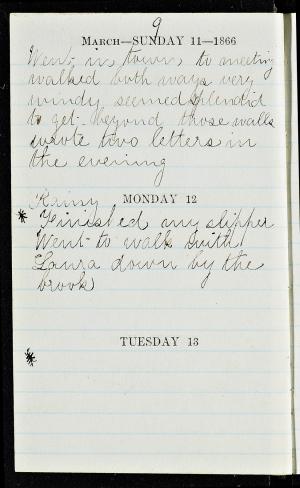 9
MARCH—SUNDAY 11—1866
Went in town to meeting
walked both ways very
windy seemed splendid
to get beyond those walls
wrote two letters in
the evening
MONDAY 12
* Finished my slipper
Went to walk with
Laura down by the
brook
TUESDAY 13
*